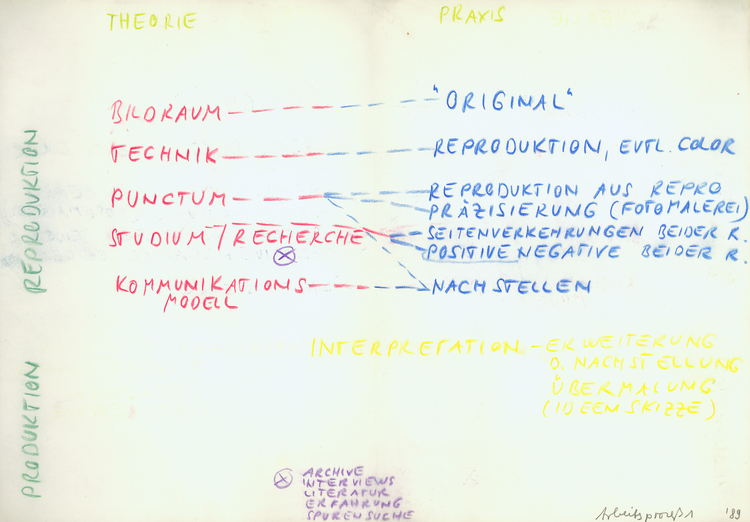 THEORIE
PRAXIS
REPRODUKTION
PRODUKTION
BILDRAUM — "ORIGINAL"
TECHNIK — REPRODUKTION, EVTL. COLOR
PUNCTUM — REPRODUKTION AUS REPRO
PRÄZISIERUNG (FOTOMALEREI)
STUDIUM/RECHERCHE — SEITENVERKEHRUNGEN BEIDER R.
⊗ POSITIVE NEGATIVE BEIDER R.
KOMMUNIKATIONS — NACHSTELLEN
MODELL
INTERPRETATION – ERWEITERUNG
O. NACHSTELLUNG
ÜBERMALUNG
(IDEENSKIZZE)
⊗ ARCHIVE
INTERVIEWS
LITERATUR
ERFAHRUNG
SPURENSUCHE
Arbeitsprozeß 1 '89